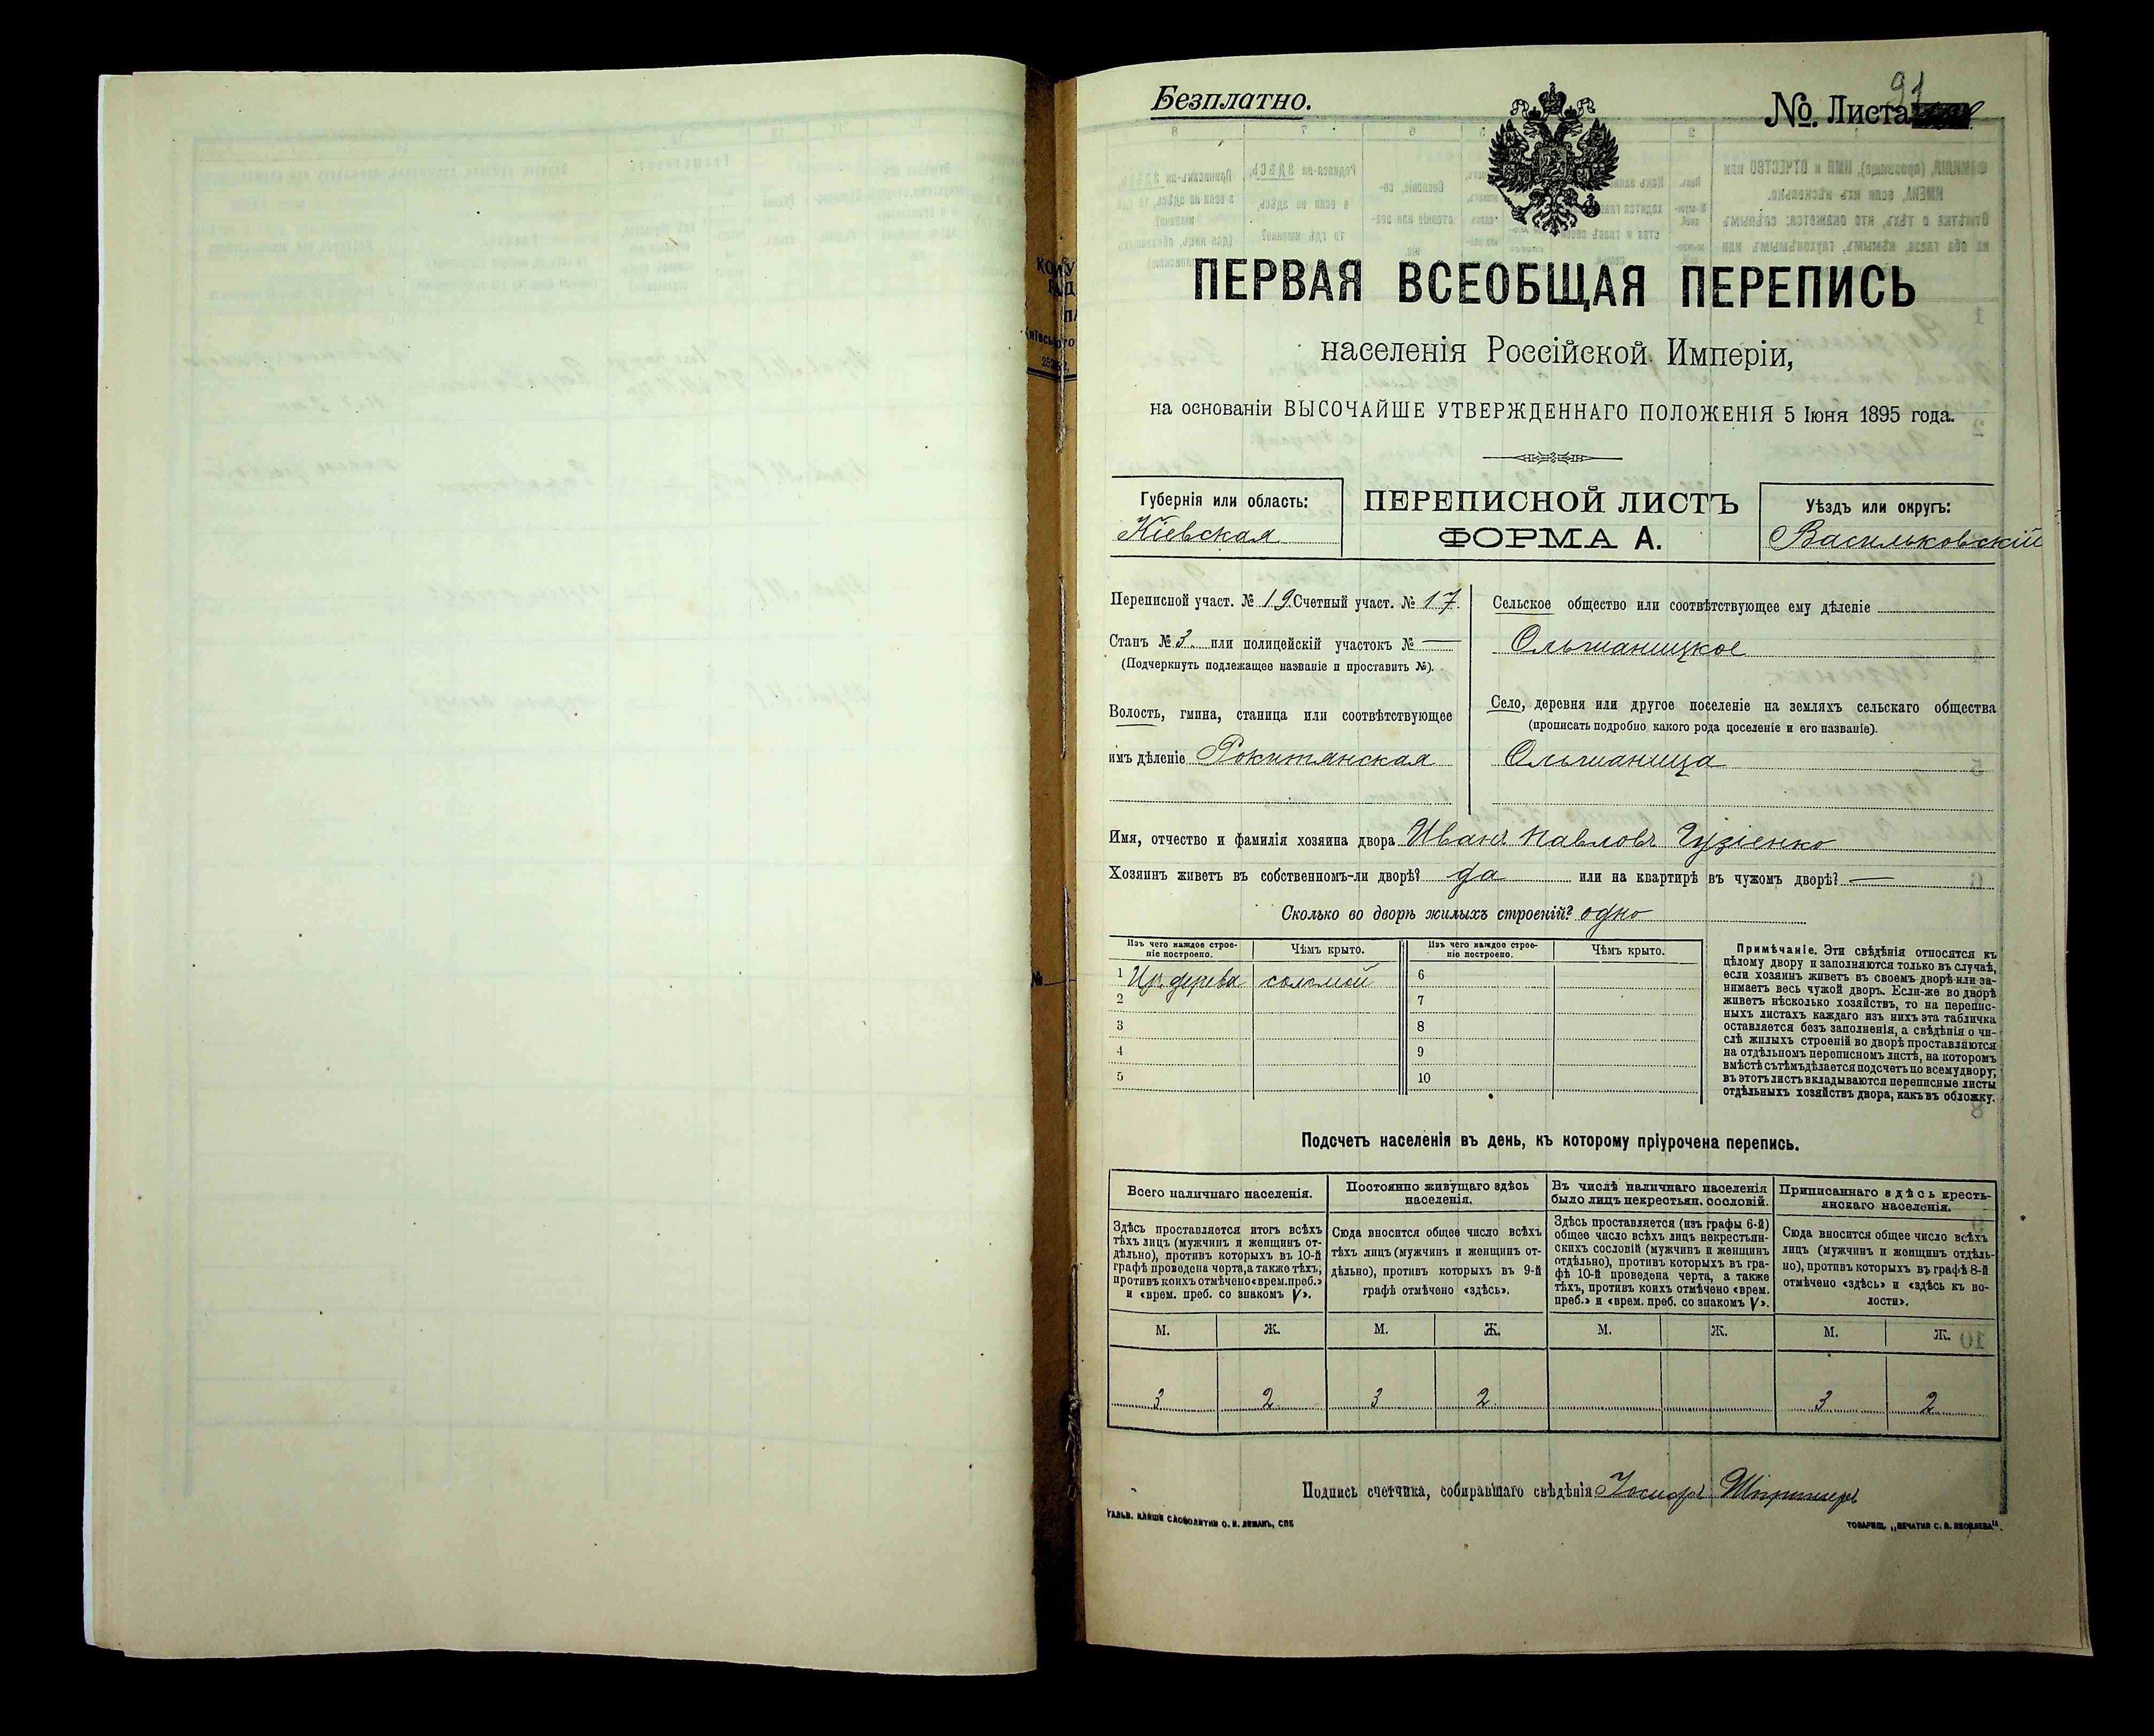 Безплатно.
91
№ Листа
ПЕРВАЯ ВСЕОБЩАЯ ПЕРЕПИСЬ
населенія Россійской Имперіи,
на основаніи ВЫСОЧАЙШЕ УТВЕРЖДЕННАГО ПОЛОЖЕНІЯ 5 Іюня 1895 года.
Губернія или область:
Кіевская
ПЕРЕПИСНОЙ ЛИСТЪ
ФОРМА А.
Уѣздъ или округъ:
Васильковскій
Переписной участ. № 19 Счетный участ. № 17.
Станъ № 3. или полицейскій участокъ № —
(Подчеркнуть подлежащее названіе и проставить №).
Волость, гмина, станица или соотвѣтствующее
имъ дѣленіе Рокитянская
Сельское общество или соотвѣтствующее ему дѣленіе
Ольшаницкое
Село, деревня или другое поселеніе на земляхъ сельскаго общества
(прописать подробно какого рода поселеніе и его названіе).
Ольшаница
Имя, отчество и фамилія хозяина двора Иванъ Павловъ Гузіенко
Хозяинъ живетъ въ собственномъ-ли дворѣ? да или на квартирѣ въ чужомъ дворѣ? —
Сколько во дворѣ жилыхъ строеній? одно
Изъ чего каждое строе-
ніе построено.
Чѣмъ крыто.
Изъ чего каждое строе-
ніе построено.
Чѣмъ крыто.
1 Из дерева соломой 6
2 7
3 8
4 9
5 10
Примѣчаніе. Эти свѣдѣнія относятся къ
цѣлому двору и заполняются только въ случаѣ,
если хозяинъ живетъ въ своемъ дворѣ или за-
нимаетъ весь чужой дворъ. Если-же во дворѣ
живетъ нѣсколько хозяйствъ, то на перепис-
ныхъ листахъ каждаго изъ нихъ эта табличка
оставляется безъ заполненія, а свѣдѣнія о чи-
слѣ жилыхъ строеній во дворѣ проставляются
на отдѣльномъ переписномъ листѣ, на которомъ
вмѣстѣ съ тѣмъ дѣлается подсчетъ по всему двору;
въ этотъ листъ вкладываются переписные листы
отдѣльныхъ хозяйствъ двора, какъ въ обложку.
Подсчетъ населенія въ день, къ которому пріурочена перепись.
Всего наличнаго населенія.
Здѣсь проставляется итогъ всѣхъ
тѣхъ лицъ (мужчинъ и женщинъ от-
дѣльно), противъ которыхъ въ 10-й
графѣ проведена черта, а также тѣхъ,
противъ коихъ отмѣчено «врем. преб.»
и «врем. преб. со знакомъ V».
Постоянно живущаго здѣсь
населенія.
Сюда вносится общее число всѣхъ
тѣхъ лицъ (мужчинъ и женщинъ от-
дѣльно), противъ которыхъ въ 9-й
графѣ отмѣчено «здѣсь».
Въ числѣ наличнаго населенія
было лицъ некрестьян. сословій.
Здѣсь проставляется (изъ графы 6-й)
общее число всѣхъ лицъ некрестьян-
скихъ сословій (мужчинъ и женщинъ
отдѣльно), противъ которыхъ въ гра-
фѣ 10-й проведена черта, а также
тѣхъ, противъ коихъ отмѣчено «врем.
преб.» и «врем. преб. со знакомъ V».
Приписаннаго здѣсь кресть-
янскаго населенія.
Сюда вносится общее число всѣхъ
лицъ (мужчинъ и женщинъ отдѣль-
но), противъ которыхъ въ графѣ 8-й
отмѣчено «здѣсь» и «здѣсь къ во-
лости».
М. Ж. М. Ж. М. Ж. М. Ж.
3 2 3 2 3 2
Подпись счетчика, собиравшаго свѣдѣнія Іосифъ
ТОВАРИЩ. „ПЕЧАТНЯ С. П. ЯКОВЛЕВА“